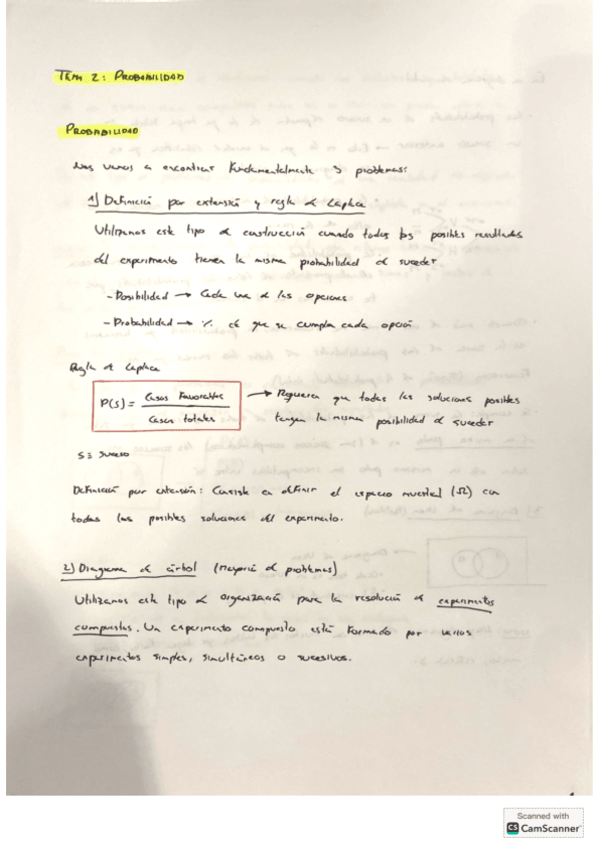 TEMA 2: PROBABILIDAD
PROBABILIDAD
Nos vamos a encontrar fundamentalmente 3 problemas:
1) Definición por extensión y regla de Laplace
Utilizamos este tipo de construcción cuando todos los posibles resultados
del experimento tienen la misma probabilidad de suceder
- Posibilidad → Cada una de las opciones
- Probabilidad → % de que se cumpla cada opción
Regla de Laplace
P(S) = Casos Favorables / Casos totales
→ Requiere que todas las soluciones posibles
tengan la misma posibilidad de suceder
S ≡ Suceso
Definición por extensión: Consiste en definir el espacio muestral (Ω) con
todas las posibles soluciones del experimento.
2) Diagrama de árbol (Mayoría de problemas)
Utilizamos este tipo de organización para la resolución de experimentos
compuestos. Un experimento compuesto está formado por varios
experimentos simples, simultáneos o sucesivos.
Scanned with
CS CamScanner